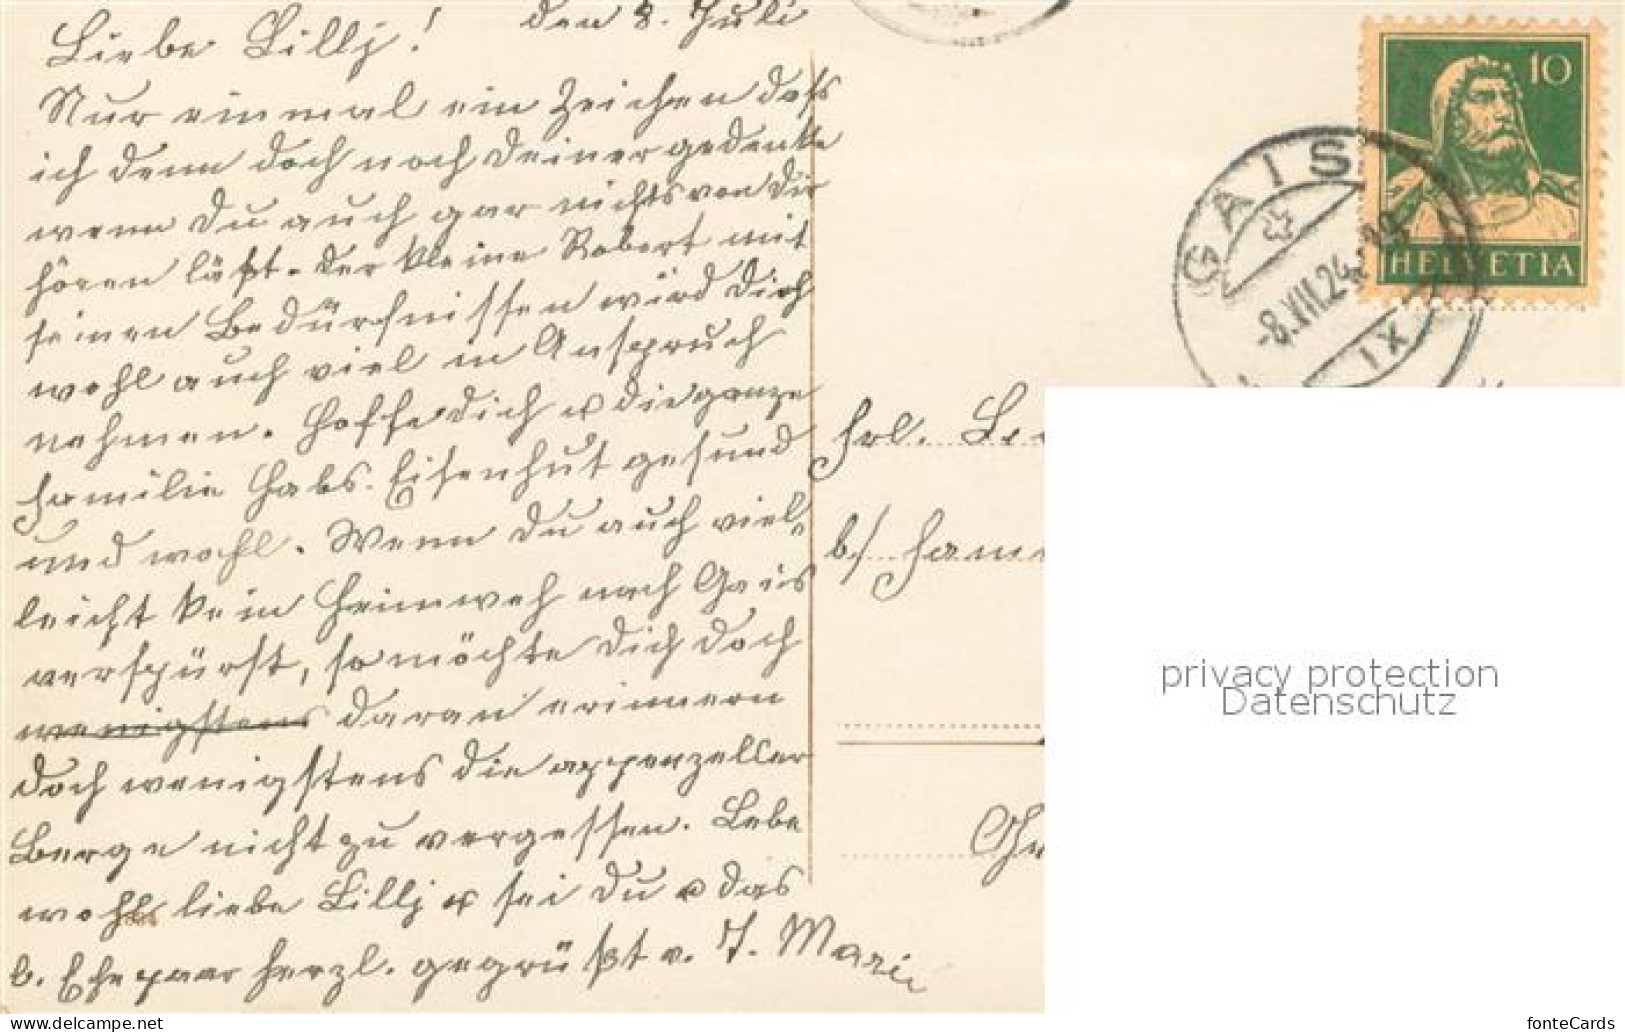 den 8. Juli
Liebe Lillj!
Nur einmal ein Zeichen dass
ich denn doch noch Deiner gedenke
wenn Du auch gar nichts von Dir
hören läßt. Der kleine Robert mit
seinen Bedürfnissen wird Dich
wohl auch viel in Anspruch
nehmen. Hoffe Dich u die ganze
Familie Habs. Eisenhut gesund
und wohl. Wenn Du auch viel„
leicht kein Heimweh nach Gais
verspürst, so möchte Dich doch
wenigstens daran erinnern
doch wenigstens die appenzeller
Berge nicht zu vergessen. Lebe
wohl liebe Lillj u sei Du u das
b. Ehepaar herzl. gegrüßt v. J. Marie
10
HELVETIA
GAIS
-8.VII.24
IX
Frl.
b/ Fam
privacy protection
Datenschutz
www.delcampe.net
fonteCards